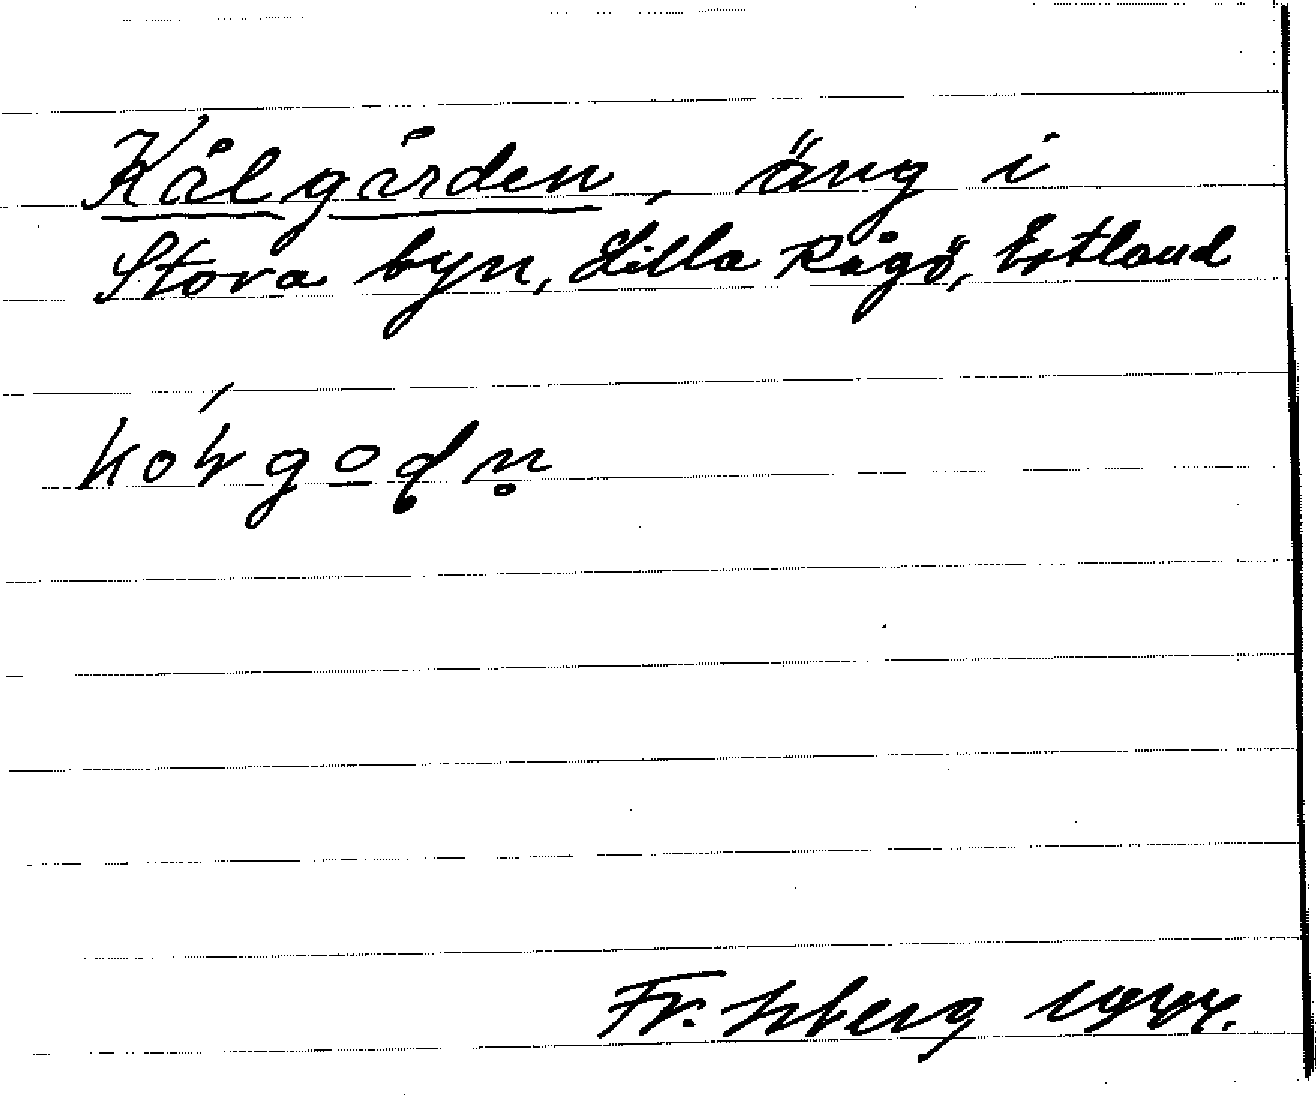 Kålgården, äng i
Stora byn, Lilla Rågö, Estland
Fr. Isberg 1944.